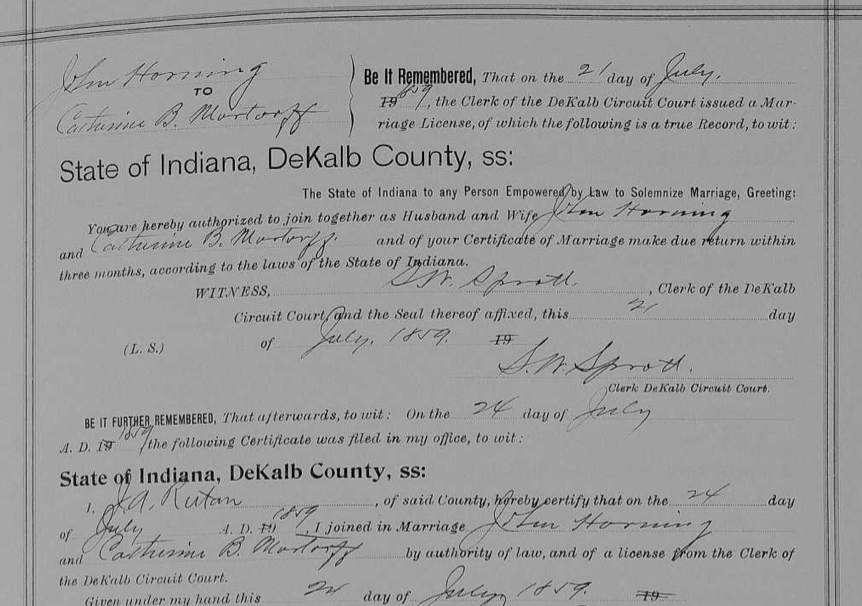 John Horning
TO
Catherine B. Mortorff
Be It Remembered, That on the 21 day of July.
19 1859, the Clerk of the DeKalb Circuit Court issued a Mar-
riage License, of which the following is a true Record, to wit:
State of Indiana, DeKalb County, ss:
The State of Indiana to any Person Empowered by Law to Solemnize Marriage, Greeting:
You are hereby authorized to join together as Husband and Wife John Horning
and Catherine B. Mortorff. and of your Certificate of Marriage make due return within
three months, according to the laws of the State of Indiana.
WITNESS, S.W. Sprott. , Clerk of the DeKalb
Circuit Court, and the Seal thereof affixed, this 21 day
(L. S.) of July. 1859. 19
S.W. Sprott.
Clerk DeKalb Circuit Court.
BE IT FURTHER REMEMBERED, That afterwards, to wit: On the 24 day of July
A. D. 19 1859, the following Certificate was filed in my office, to wit:
State of Indiana, DeKalb County, ss:
I, J.A. Rutan , of said County, hereby certify that on the 24 day
of July A. D. 19 1859, I joined in Marriage John Horning
and Catherine B. Mortorff by authority of law, and of a license from the Clerk of
the DeKalb Circuit Court.
Given under my hand this 24 day of July, 1859. 19